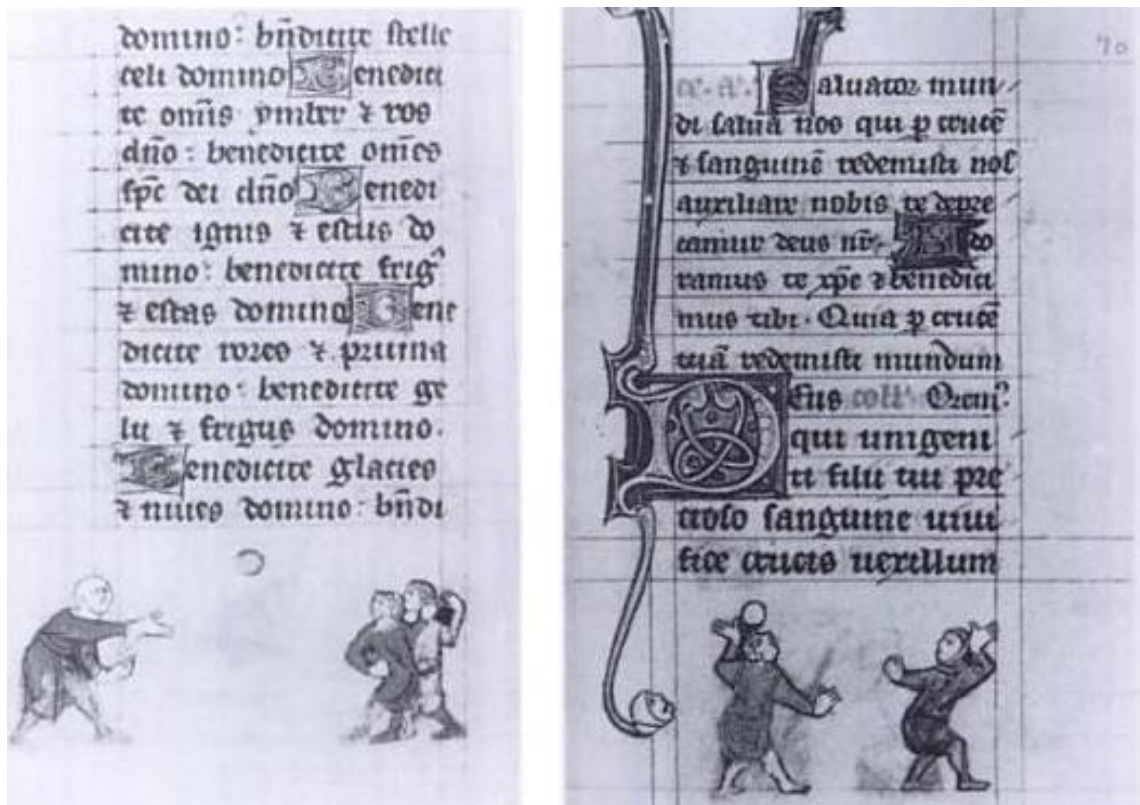 domino: bñdicite stelle
celi domino Benedici
te om̃is ymber ⁊ ros
dño: benedicite om̃es
sp̃c dei dño Benedi
cite ignis ⁊ estus do
mino: benedicite frig᷒
⁊ estas domino Bene
dicite rores ⁊ pruina
domino: benedicite ge
lu ⁊ frigus domino.
Benedicite glacies
⁊ niues domino: bñdi
70
Saluator mun
di saluã nos qui ꝑ crucẽ
⁊ sanguinẽ redemisti nos
auxiliare nobis te depre
camur deus nr̃. Ado
ramus te xp̃e ⁊ benedici
mus tibi. Quia ꝑ crucẽ
tuã redemisti mundum
Deus coll' Orem᷒.
qui unigeni
ti filii tui pre
cioso sanguine uiui
fice crucis uexillum